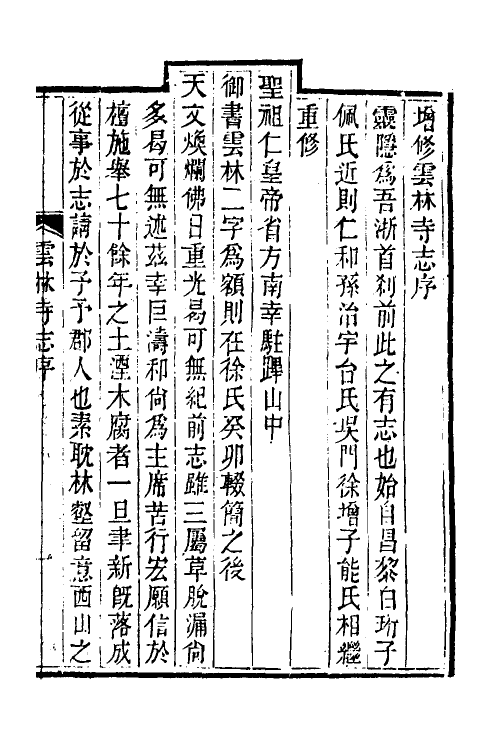 增修雲林寺志序
靈隱爲吾浙首刹前此之有志也始自昌黎白珩子
佩氏近則仁和孫治宇台氏吳門徐增子能氏相繼
重修
聖祖仁皇帝省方南幸駐蹕山中
御書雲林二字爲額則在徐氏癸卯輟簡之後
天文煥爛佛日重光曷可無紀前志雖三屬草脫漏尙
多曷可無述茲幸巨濤和尙爲主席苦行宏願信於
檀施舉七十餘年之土湮木腐者一旦聿新旣落成
從事於志請於予予郡人也素耽林壑留意西山之
雲林寺志序